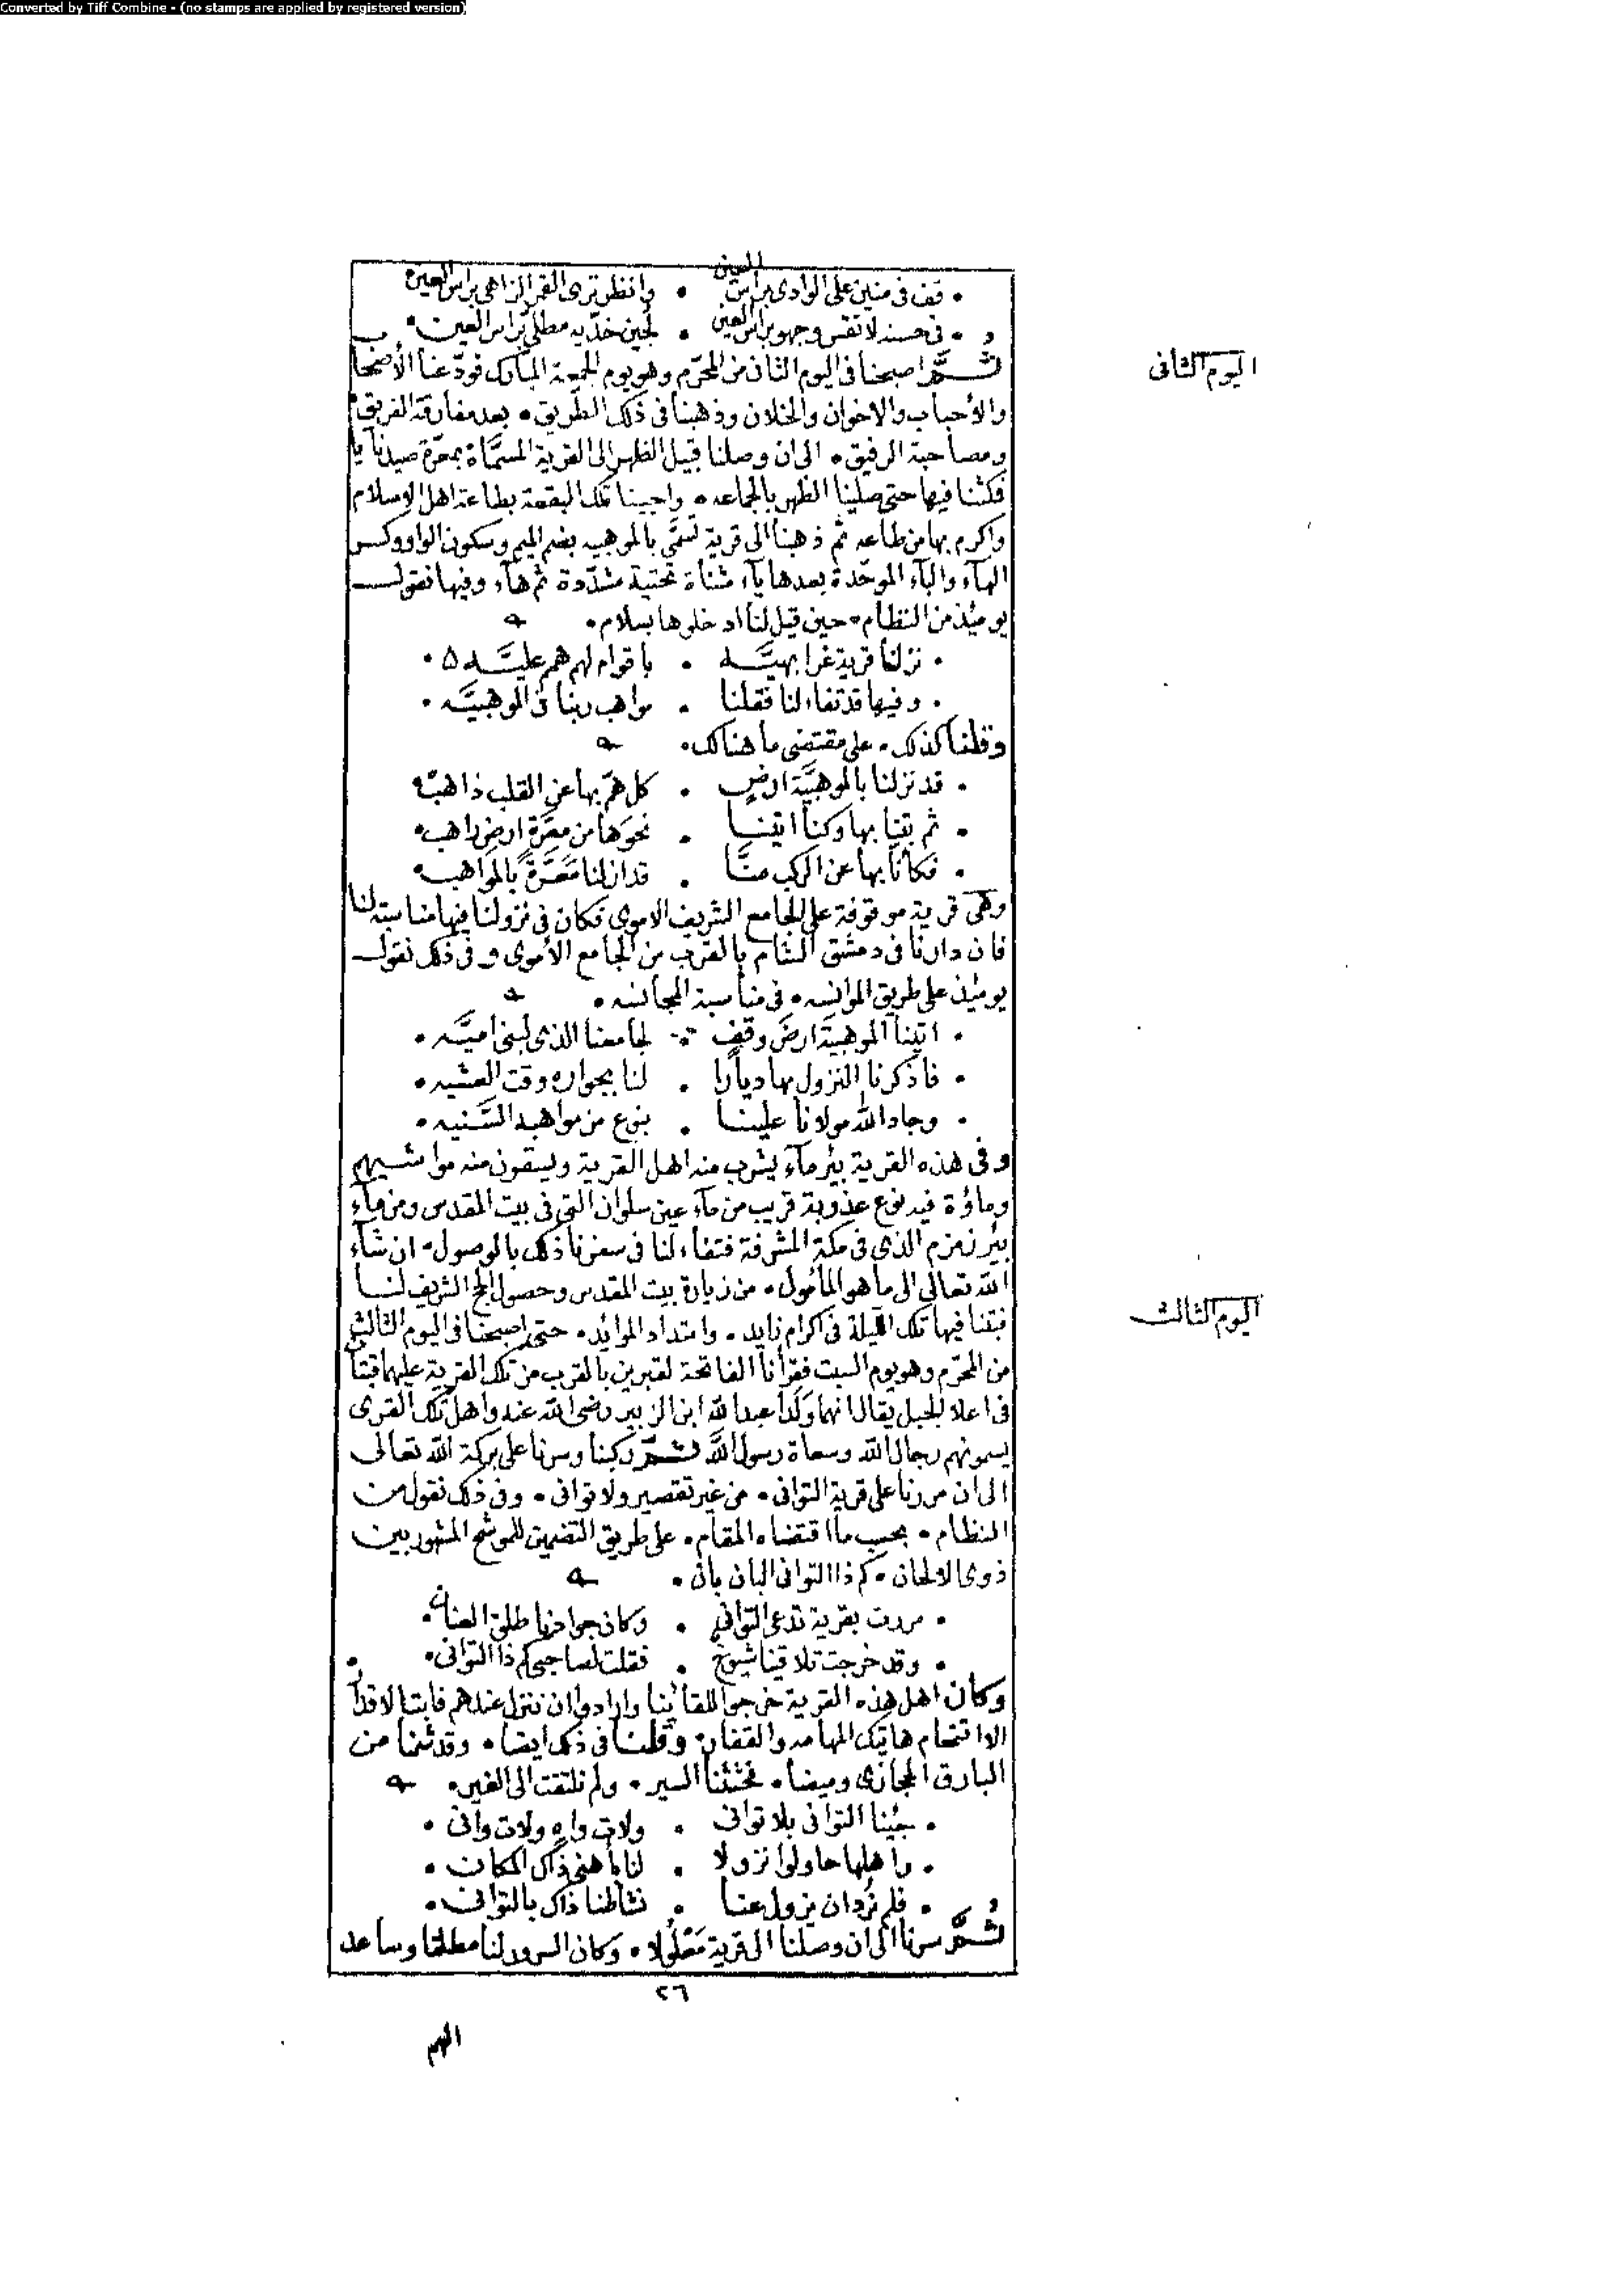 Converted by Tiff Combine - (no stamps are applied by registered version)
قف فى منين على الوادى براس العين • وانظر ترى القمر الزاهى براس العين
فى حسنه لا تقس وجهو براس العين • لجين خدّيه مطلى براس العين
ثُمَّ اصبحنا فى اليوم الثانى من المحرّم وهو يوم الجمعة المبارك فودّعنا الأصحاب
اليوم الثانى
والأحباب والاخوان والخلان وذهبنا فى ذلك الطّريق • بعد مفارقة الفريق
ومصاحبة الرفيق • الى ان وصلنا قبيل الظهر الى القرية المسمّاة بمعرّة صيدنايا
فمكثنا فيها حتى صلينا الظهر بالجماعه • واحيينا تلك البقعة بطاعة اهل الاسلام
واكرم بها من طاعه ثم ذهبنا الى قرية تسمّى بالموهبيه بضم الميم وسكون الواو وكسر
الهآء والبآء الموحّدة بعدها يآء مثناة تحتية مشدّدة ثم هآء وفيها نقول
يومئذ من النظام • حين قيل لنا ادخلوها بسلام •
• نزلنا قرية غرا بهيَّه • باقوام لهم همم عليَّه •
• وفيها قد تفاءلنا فقلنا • مواهب ربنا فى الموهبيَّه •
وقلنا كذلك • على مقتضى ما هنالك •
• قد نزلنا بالموهبيَّة ارضٍ • كل همّ بها عن القلب ذاهب
• ثم بتنا بها وكنا اتينا • نحوها من معرّة ارض راهب
• فكانا بها عن الركب منَّا • قد ازلنا مَعَرَّةً بالمواهب
وهى قرية موقوفة على الجامع الشريف الاموى فكان فى نزولنا فيها مناسبة لنا
فان دارنا فى دمشق الشام بالقرب من الجامع الأموى وفى ذلك نقول
يومئذ على طريق الموانسه • فى مناسبة المجانسه •
• اتينا الموهبيَّة ارض وقف • لجامعنا الذى لبنى اميَّه •
• فاذكرنا النزول بها ديارا • لنا بجواره وقت العشيه •
• وجاد الله مولانا علينا • بنوع من مواهبه السَّنيه •
وفى هذه القرية بئر مآء يشرب منه اهل القرية ويسقون منه مواشيهم
وماؤه فيه نوع عذوبة قريب من مآء عين سلوان التى فى بيت المقدس ومن مآء
بئر زمزم الذى فى مكة المشرفة فتفاءلنا فى سفرنا ذلك بالوصول • ان شآء
الله تعالى الى ما هو المأمول • من زيارة بيت المقدس وحصول الحج الشريف لنا
فبتنا فيها تلك الليلة فى اكرام زايد • وامتداد الموائد • حتى اصبحنا فى اليوم الثالث
اليوم الثالث
من المحرّم وهو يوم السبت فقرأنا الفاتحة لقبرين بالقرب من تلك القرية عليهما قبتان
فى اعلا الجبل يقال انهما وَلَدَا عبد الله ابن الزبير رضى الله عنه واهل تلك القرى
يسمونهم رجال الله وسعاة رسول الله ثُمَّ ركبنا وسرنا على بركة الله تعالى
الى ان مررنا على قرية التوانى • من غير تقصير ولا توانى • وفى ذلك نقول من
النظام • بحسب ما اقتضاه المقام • على طريق التضمين للموشح المشهور بين
ذوى الالحان • كم ذا التوانى البان بان •
• مررت بقرية تدعى التوانى • وكان جوادنا طلق العنان •
• وقد خرجت تلاقينا شيوخ • فقلت لصاحبى كم ذا التوانى •
وكان اهل هذه القرية خرجوا للقائنا وارادوا ان ننزل عندهم فابت الاقدار
الا اقتحام هاتيك المهامه والقفار وقلنا فى ذلك ايضا • وقد شمنا من
البارق الحجازى وميضا • فحثثنا السير • ولم نلتفت الى الغير •
• جئنا التوانى بلا توانى • ولات واهٍ ولات وانى •
• واهلها حاولوا نزولا • لنا باهنى ذاك المكان •
• فلم نُرد ان يزول عنا • نشاطنا ذاك بالتوانى •
ثُمَّ سرنا الى ان وصلنا الى قرية مَعْلُولا • وكان السرور لنا مطلقا وساعد
٢٦
الهم